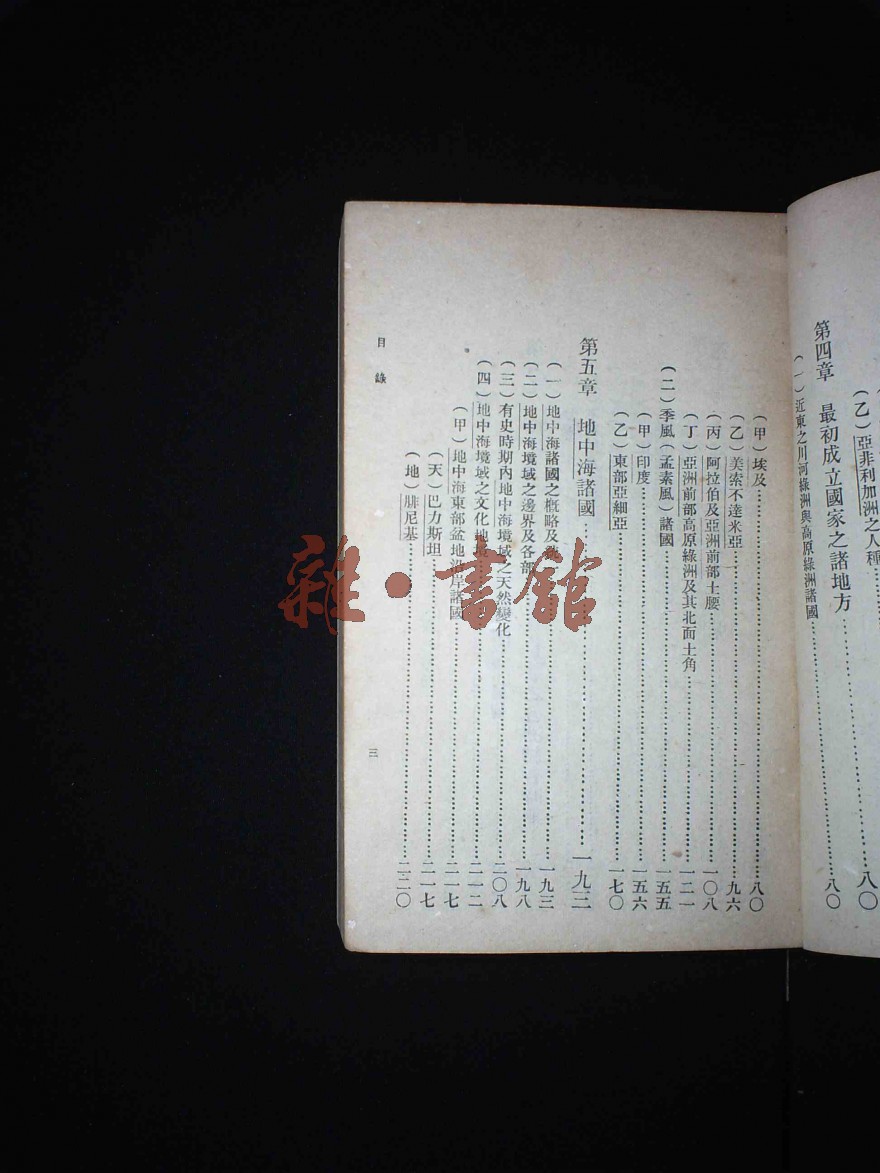 (乙)亞非利加洲之人種
第四章 最初成立國家之諸地方……八〇
(一)近東之川河綠洲與高原綠洲諸國……八〇
(甲)埃及……八〇
(乙)美索不達米亞……九六
(丙)阿拉伯及亞洲前部土腰……一〇八
(丁)亞洲前部高原綠洲及其北面土角……一二一
(二)季風(孟素風)諸國……一五五
(甲)印度……一五六
(乙)東部亞細亞……一七〇
第五章 地中海諸國……一九三
(一)地中海諸國之概略及……一九三
(二)地中海境域之邊界及各部……一九八
(三)有史時期內地中海境域之天然變化……二〇八
(四)地中海境域之文化地境……二一二
(甲)地中海東部盆地沿岸諸國……二一七
(天)巴力斯坦……二一七
(地)腓尼基……二二〇
目錄
三
雜·書館